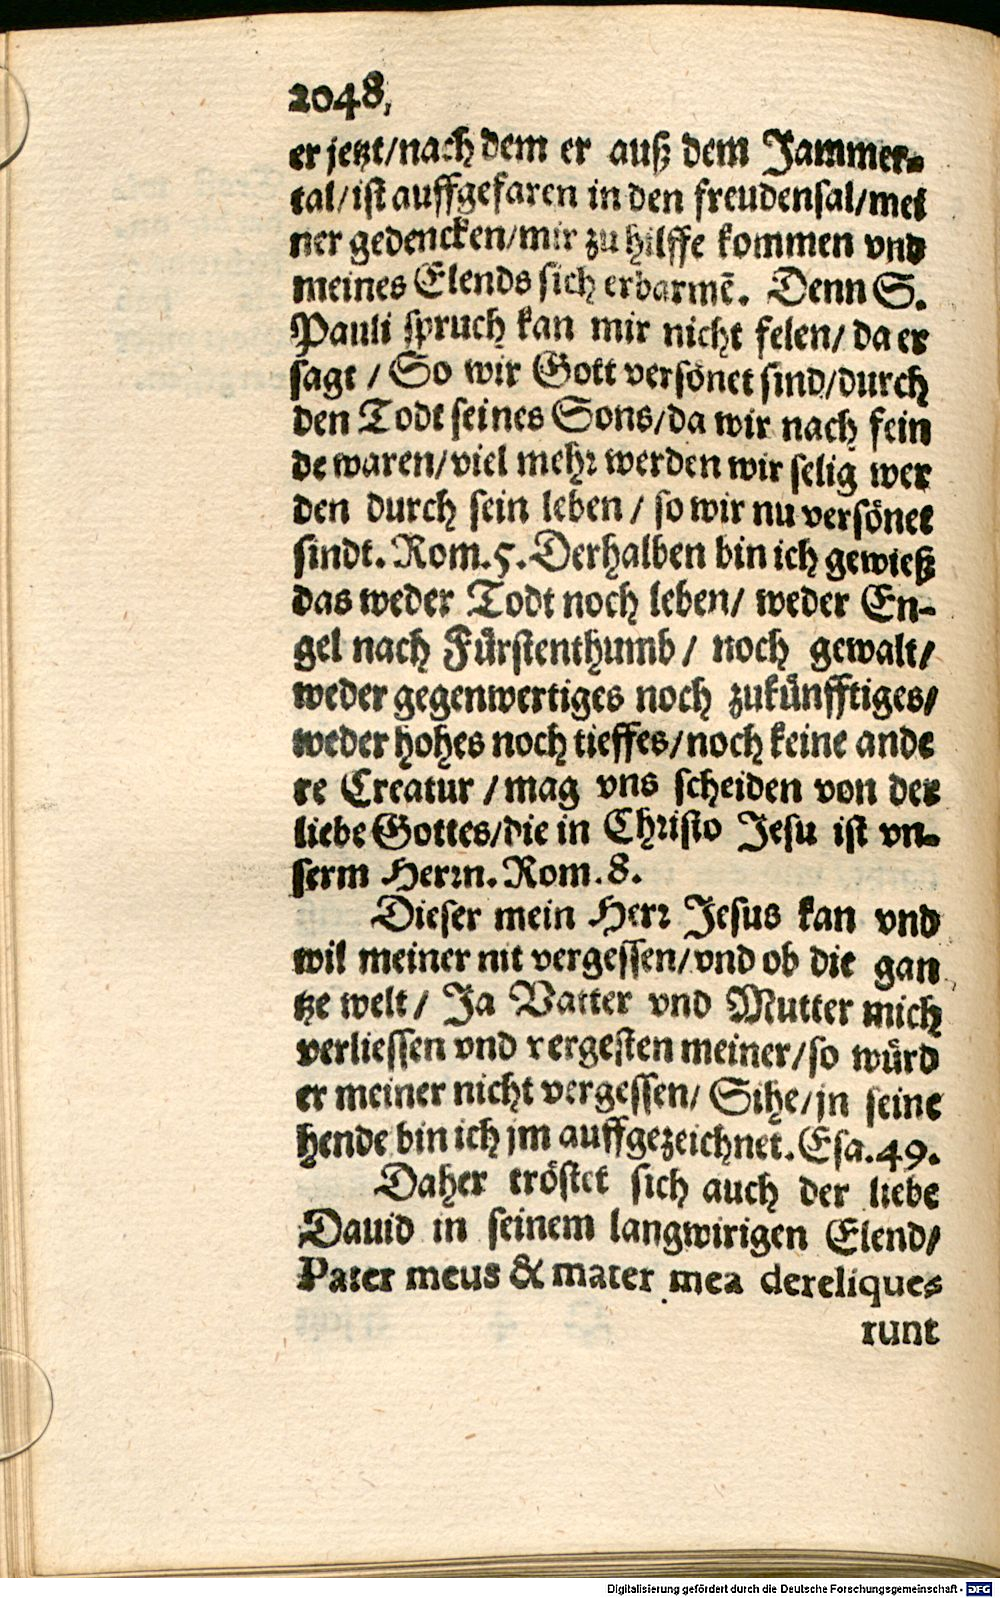 2048.
er jetzt/nach dem er auß dem Jammer-
tal/ist auffgefaren in den freudensal/mei
ner gedencken/mir zu hilffe kommen vnd
meines Elends sich erbarmē. Denn S.
Pauli spruch kan mir nicht felen/ da er
sagt / So wir Gott versönet sind/durch
den Todt seines Sons/da wir nach fein
de waren/viel mehr werden wir selig wer
den durch sein leben / so wir nu versönet
sindt. Rom.5. Derhalben bin ich gewieß
das weder Todt noch leben/ weder En-
gel nach Fürstenthumb / noch gewalt/
weder gegenwertiges noch zukünfftiges/
weder hohes noch tieffes/noch keine ande
re Creatur /mag vns scheiden von der
liebe Gottes/die in Christo Jesu ist vn-
serm Herrn. Rom.8.
Dieser mein Herr Jesus kan vnd
wil meiner nit vergessen/vnd ob die gan
tze welt/ Ja Vatter vnd Mutter mich
verliessen vnd vergesten meiner/so würd
er meiner nicht vergessen/ Sihe/jn seine
hende bin ich jm auffgezeichnet. Esa.49.
Daher tröstet sich auch der liebe
Dauid in seinem langwirigen Elend/
Pater meus & mater mea derelique-
runt
Digitalisierung gefördert durch die Deutsche Forschungsgemeinschaft - DFG